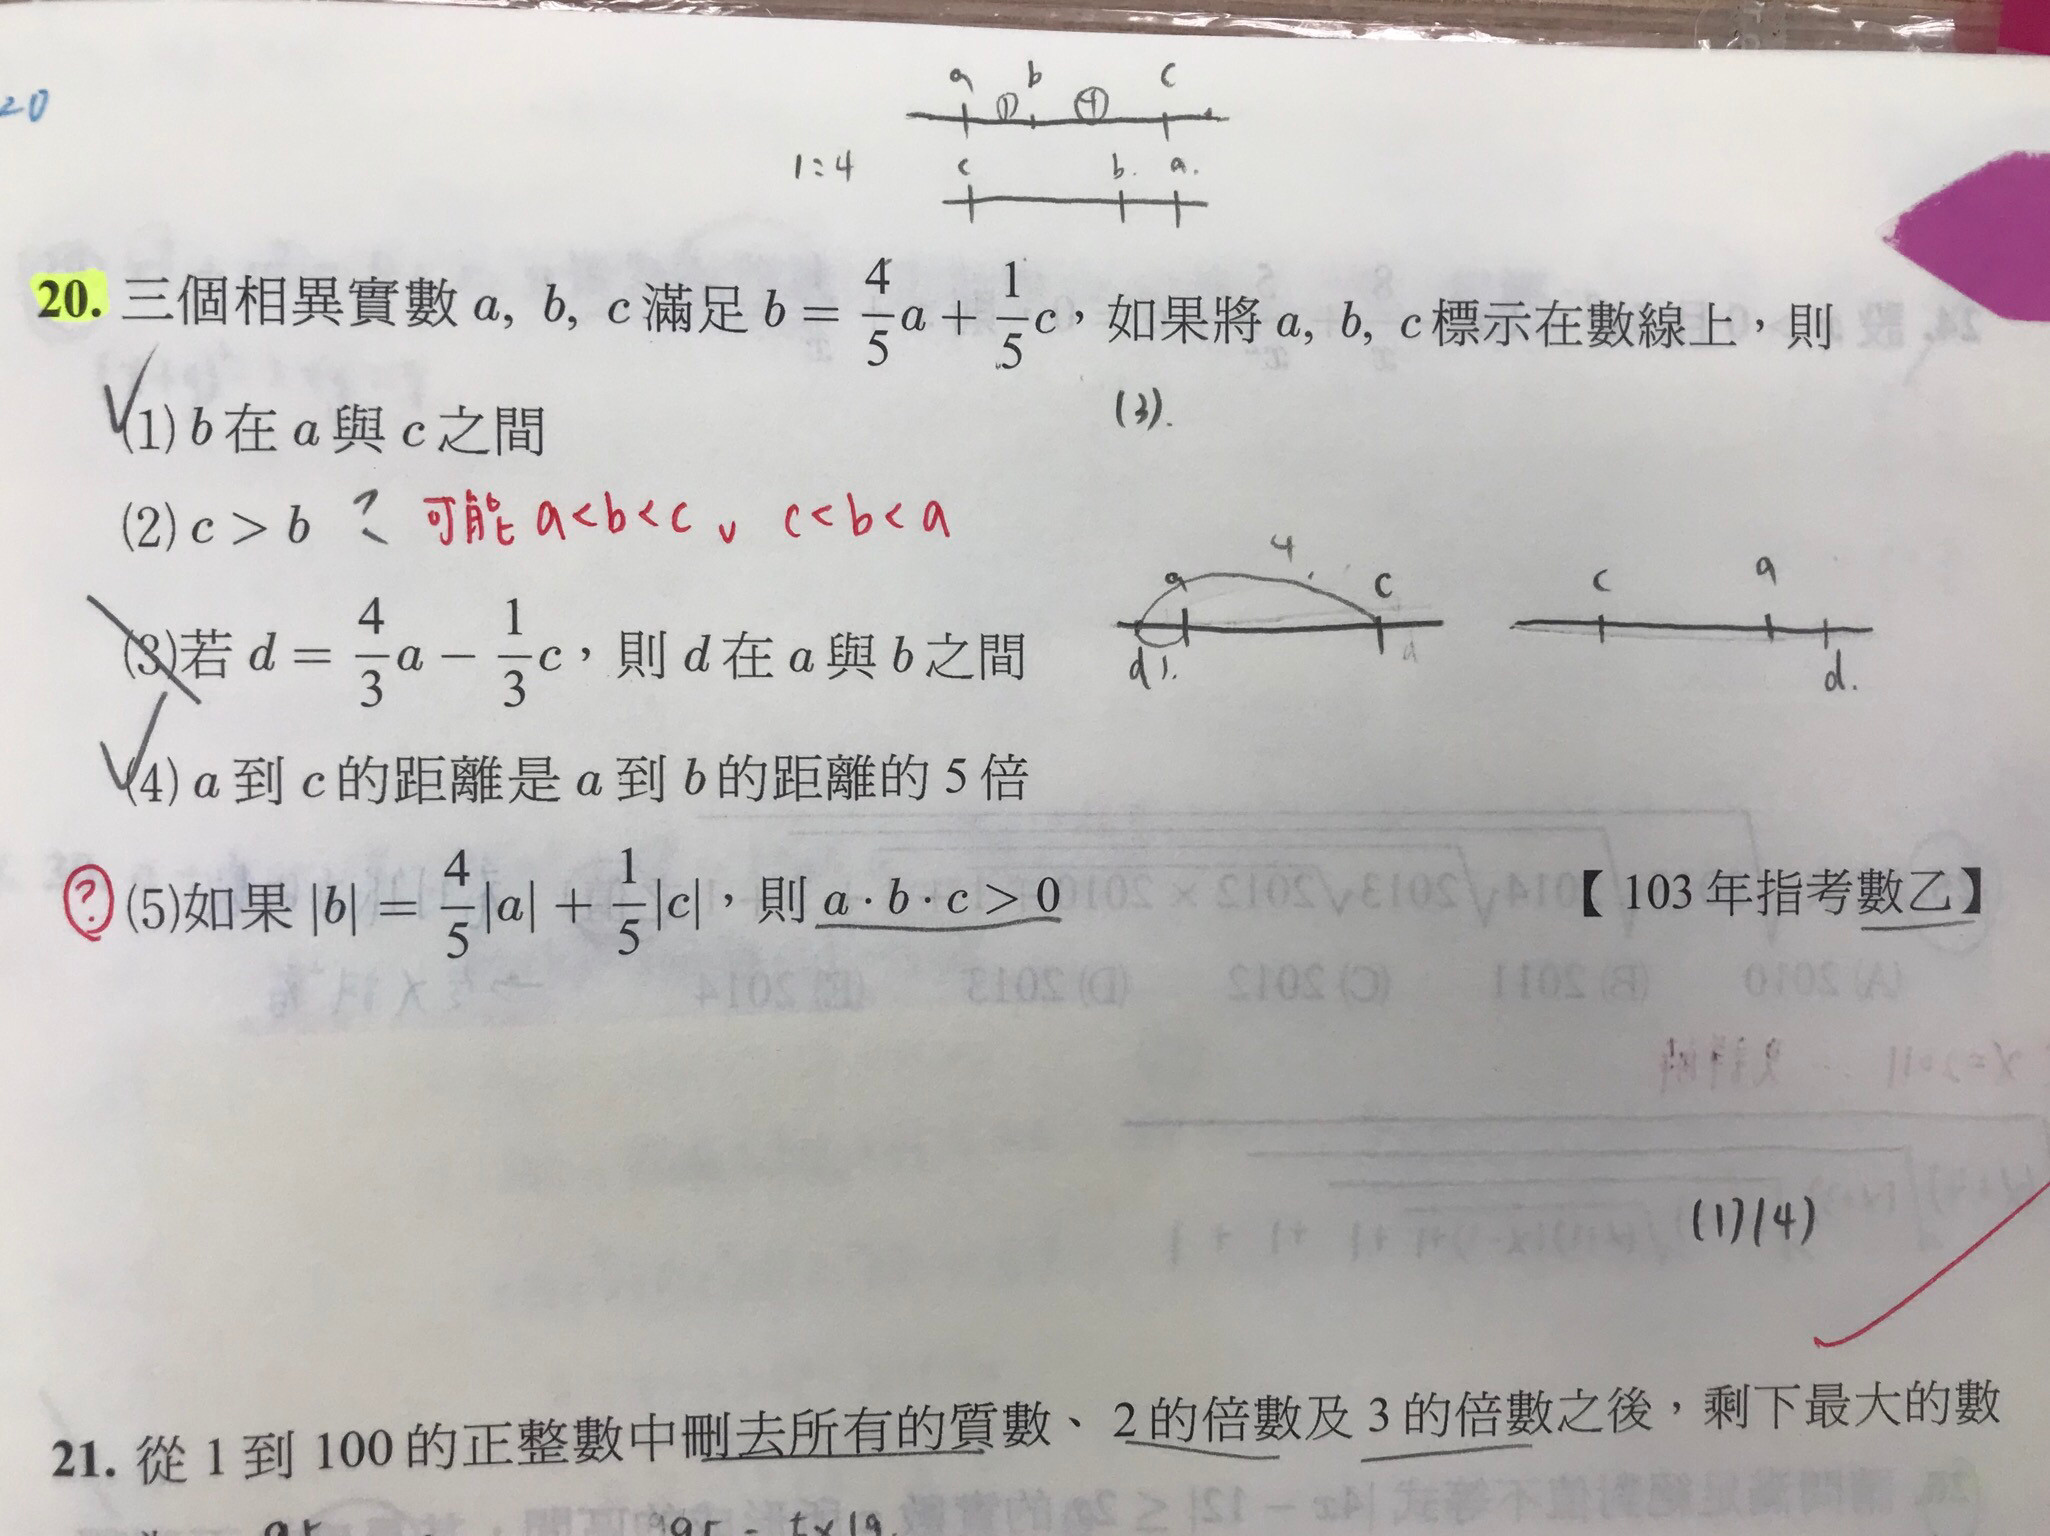 20
a b c
① ④
1:4 c b. a.
20. 三個相異實數 a, b, c 滿足 b = 4/5 a + 1/5 c，如果將 a, b, c 標示在數線上，則
(1) b 在 a 與 c 之間
(3).
(2) c > b ? 可能 a<b<c、c<b<a
4
a c c a
(3)若 d = 4/3 a − 1/3 c，則 d 在 a 與 b 之間
d 1. d d.
(4) a 到 c 的距離是 a 到 b 的距離的 5 倍
? (5)如果 |b| = 4/5 |a| + 1/5 |c|，則 a · b · c > 0 【 103 年指考數乙】
(1)(4)
21. 從 1 到 100 的正整數中刪去所有的質數、2 的倍數及 3 的倍數之後，剩下最大的數